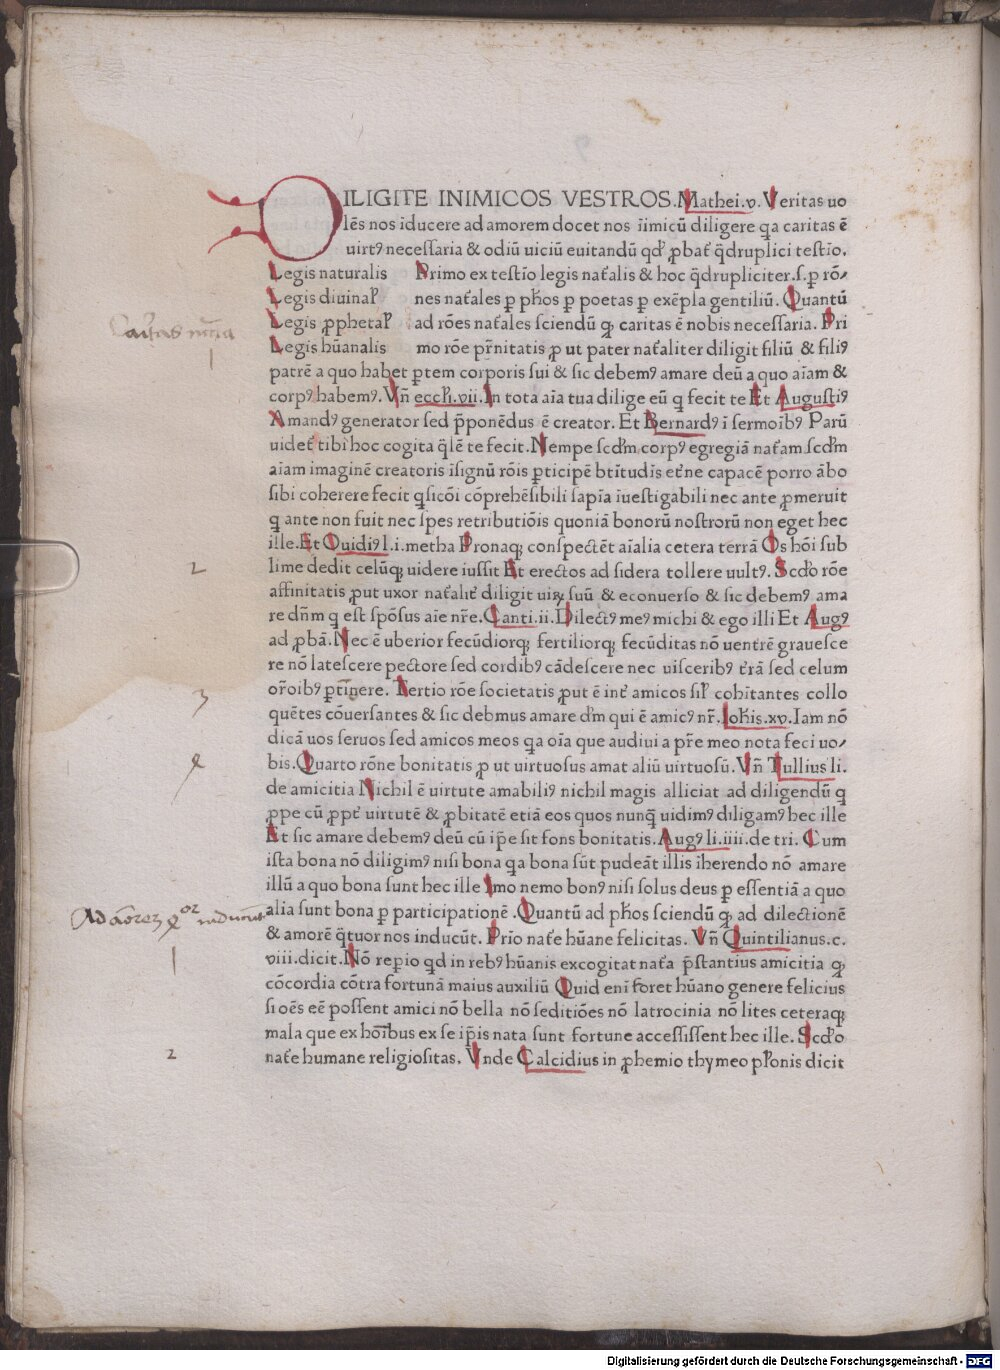 DILIGITE INIMICOS VESTROS. Mathei.v. Veritas uo
lēs nos īducere ad amorem docet nos iīmicū diligere qa caritas ē
uirtꝰ necessaria & odiū uiciū euitandū qđ ꝓbat̄ q̄druplici testīo.
Legis naturalis Primo ex testīo legis nat̄alis & hoc q̄drupliciter.s.ꝑ rō-
Legis diuinaꝝ nes nat̄ales ꝑ pħos ꝑ poetas ꝑ exēpla gentiliū. Quantū
Legis ꝓphetaꝝ ad rōes nat̄ales sciendū ꝙ caritas ē nobis necessaria. Pri
Legis hūanalis mo rōe pr̄nitatis ꝓ ut pater nat̄aliter diligit filiū & filiꝰ
patrē a quo habet ꝑtem corporis sui & sic debemꝰ amare deū a quo aīam &
corpꝰ habemꝰ. Vn̄ eccľi.vii. In tota aīa tua dilige eū q̄ fecit te Et Augustiꝰ
Amandꝰ generator sed p̄ponēdus ē creator. Et Bernardꝰ ī sermoībꝰ Parū
uidet̄ tibi hoc cogita q̄lē te fecit. Nempe scđm corpꝰ egregiā nat̄am scđm
aīam imaginē creatoris īsignū rōis ꝑticipē btītudīs et̄ne capacē porro ābo
sibi coherere fecit q̄sicōi cōprehēsibili sapīa īuestigabili nec ante ꝓmeruit
q̄ ante non fuit nec spes retributiōis quoniā bonorū nostrorū non eget hec
ille. Et Ouidiꝰ l.i.metha Pronaqꝫ conspectēt aīalia cetera terrā Os hōi sub
lime dedit celūqꝫ uidere iussit Et erectos ad sidera tollere uultꝰ. Scđo rōe
affinitatis ꝓut uxor nat̄alit̄ diligit uiꝝ suū & econuerso & sic debemꝰ ama
re dn̄m q̄ est spōsus aīe nr̄e. Canti.ii. Dilectꝰ meꝰ michi & ego illi Et Augꝰ
ad ꝓbā. Nec ē uberior fecūdiorqꝫ fertiliorqꝫ fecūditas nō uentrē grauesce
re nō latescere pectore sed cordibꝰ cādescere nec uisceribꝰ t̄rā sed celum
or̄oibꝰ ꝑtīnere. Tertio rōe societatis ꝓut ē int̄ amicos siľ cohītantes collo
quētes cōuersantes & sic debmus amare dm̄ qui ē amicꝰ nr̄. Ioħis.xv. Iam nō
dicā uos seruos sed amicos meos qa oīa que audiui a pr̄e meo nota feci uo-
bis. Quarto rōne bonitatis ꝓ ut uirtuosus amat aliū uirtuosū. Vn̄ Tullius li.
de amicitia Nichil ē uirtute amabiliꝰ nichil magis alliciat ad diligendū q̄
ꝓpe cū ꝓpt̄ uirtutē & ꝓbitatē etiā eos quos nunq̄ uidimꝰ diligamꝰ hec ille
Et sic amare debemꝰ deū cū ip̄e sit fons bonitatis. Augꝰ li.iiii.de tri. Cum
ista bona nō diligimꝰ nisi bona qa bona sūt pudeāt illis īherendo nō amare
illū a quo bona sunt hec ille Imo nemo bonꝰ nisi solus deus ꝑ essentiā a quo
alia sunt bona ꝑ participationē. Quantū ad pħos sciendū ꝙ ad dilectionē
& amorē q̄tuor nos inducūt. Prio nat̄e hūane felicitas. Vn̄ Quintilianus.c.
viii.dicit. Nō reꝑio qđ in rebꝰ hūanis excogitat nat̄a p̄stantius amicitia ꝙ
cōcordia cōtra fortunā maius auxiliū Quid enī foret hūano genere felicius
si oēs eē possent amici nō bella nō seditiōes nō latrocinia nō lites ceteraqꝫ
mala que ex hoībus ex se ip̄is nata sunt fortune accessissent hec ille. Scđo
nat̄e humane religiositas. Vnde Calcidius in ꝓhemio thymeo pľonis dicit
1
2
3
1
2
Digitalisierung gefördert durch die Deutsche Forschungsgemeinschaft - DFG